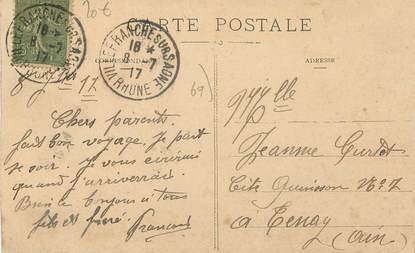 20€
CARTE POSTALE
CORRESPONDANCE
ADRESSE
VILLEFRANCHE-SUR-SAONE
18 *
8 -7
17
RHONE
VILLEFRANCHE-SUR-SAONE
18 *
8 -7
17
RHONE
69
17
Chers parents
fait bon voyage. Je part
se soir. je vous écrirai
quand j'arriverrai.
Bons a tous
fils et frère
Francant
Mlle
Jeanne
Cité Quinson No 7
a Tenay
(Ain)